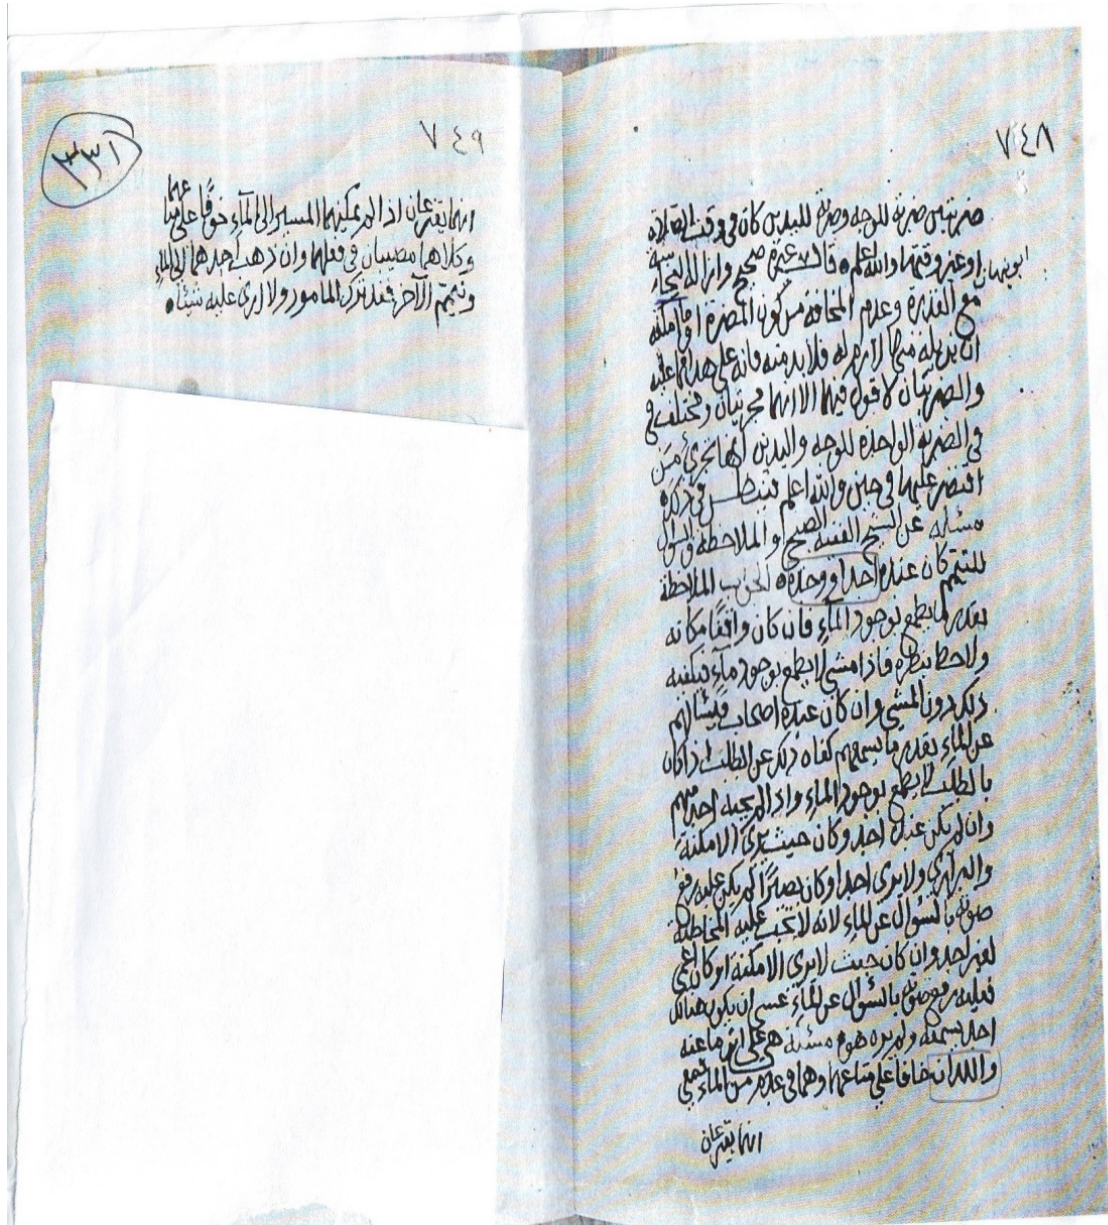 ٧٤٨
ضربتين ضربة للوجه وضربة لليدين كان في وقت الصلاة
او غير وقتها والله اعلم ه قال غيره صحيح وازالة النجاسة
ابو نبهان
مع القدرة وعدم المخافة من كون المضرة اذا ما امكنه
ان يزيله منها لازم له فلا بد منه فانه على هذا مما عليه
والضربتان لا قول فيهما الا انهما مجزيتان ومختلف في
في الضربة الواحدة للوجه واليدين انها تجزئ من
اقتصر عليها في حين والله اعلم فينظر في ذلك
مسئلة عن الشيخ الفقيه الصبحي او الملاحظة والسؤال
للتيمم كان عنده احد او وحده ه الجواب الملاحظة
بقدر ما يطمع بوجود الماء فان كان واقفا مكانه
ولاحظ بنظره فاذا مشى لا يطمع بوجود ماء فيكفيه
ذلك دون المشي وان كان عنده اصحاب فيسألهم
عن الماء بقدر ما يسمعهم كفاه ذلك عن الطلب اذا كان
بالطلب لا يطمع بوجود الماء واذا لم يجبه احد منهم
وان لم يكن عنده احد وكان حيث يرى الامكنة
والبراري ولا يرى احدا وكان بصيرا لم يكن عليه رفع
صوته بالسؤال عن الماء لانه لا يجب عليه المخاطبة
لغير احد وان كان حيث لا يرى الامكنة او كان اعمى
فعليه رفع صوته بالسؤال عن الماء عسى ان يكون هنالك
احد يسمعه ولم يره هو ه مسئلة هي على اثر ما عنه
واللذان خافا على متاعهما وهما في عدم من الماء فعلى
انهما يقترعان
٧٤٩
٣٣١
انهما يقترعان اذا لم يمكنهما المسير الى الماء خوفا على متاعهما
وكلاهما مصيبان في فعلهما وان ذهب احدهما الى الماء
وتيمم الآخر فقد ترك المامور ولا ارى عليه شيئا ه